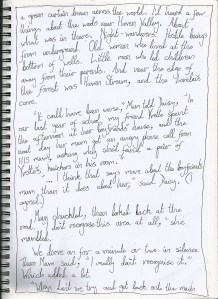 a green curtain down across the world. I'd heard a few
things about the woods near Haven Valley. About
what was in there. Night-wanderers. Noble beings
from underground. Old women who lived at the
bottom of wells. Little men who hid children
away from their parents. And near the edge of
the forest was Haven Stream, and the
cave.
"It could have been worse," Mam told Daisy. "In
our last year of school my friend Yvette spent
the afternoon at her boyfriend's house, and the
next day her mam got an angry phone call from
HIS mam, asking why she'd found a pair of
Yvette's knickers in his room."
"I think that says more about the boyfriend's
mam, than it does about her," said Daisy,
Mam chuckled, then looked back at the
road. "I don't recognise this area at all," she
mumbled.
We drove on for a minute or two in silence.
Then Mam said, "I really don't recognise it."
Which added a lot.
"Why don't we try and get back onto the main